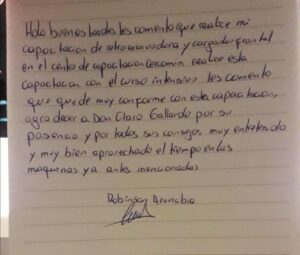 Hola buenas tardes les comento que realice mi
capacitacion de retroexcavadora y cargador frontal
en el centro de capacitacion cenamin realize esta
capacitacion con el curso intensivo les comento
que quede muy conforme con esta capacitacion,
agradecer a Don Claro Gallardo por su
paciencia y por todos sus consejos muy entretenido
y muy bien aprovechado el tiempo en las
maquinas ya antes mencionadas
Robinson Arancibia